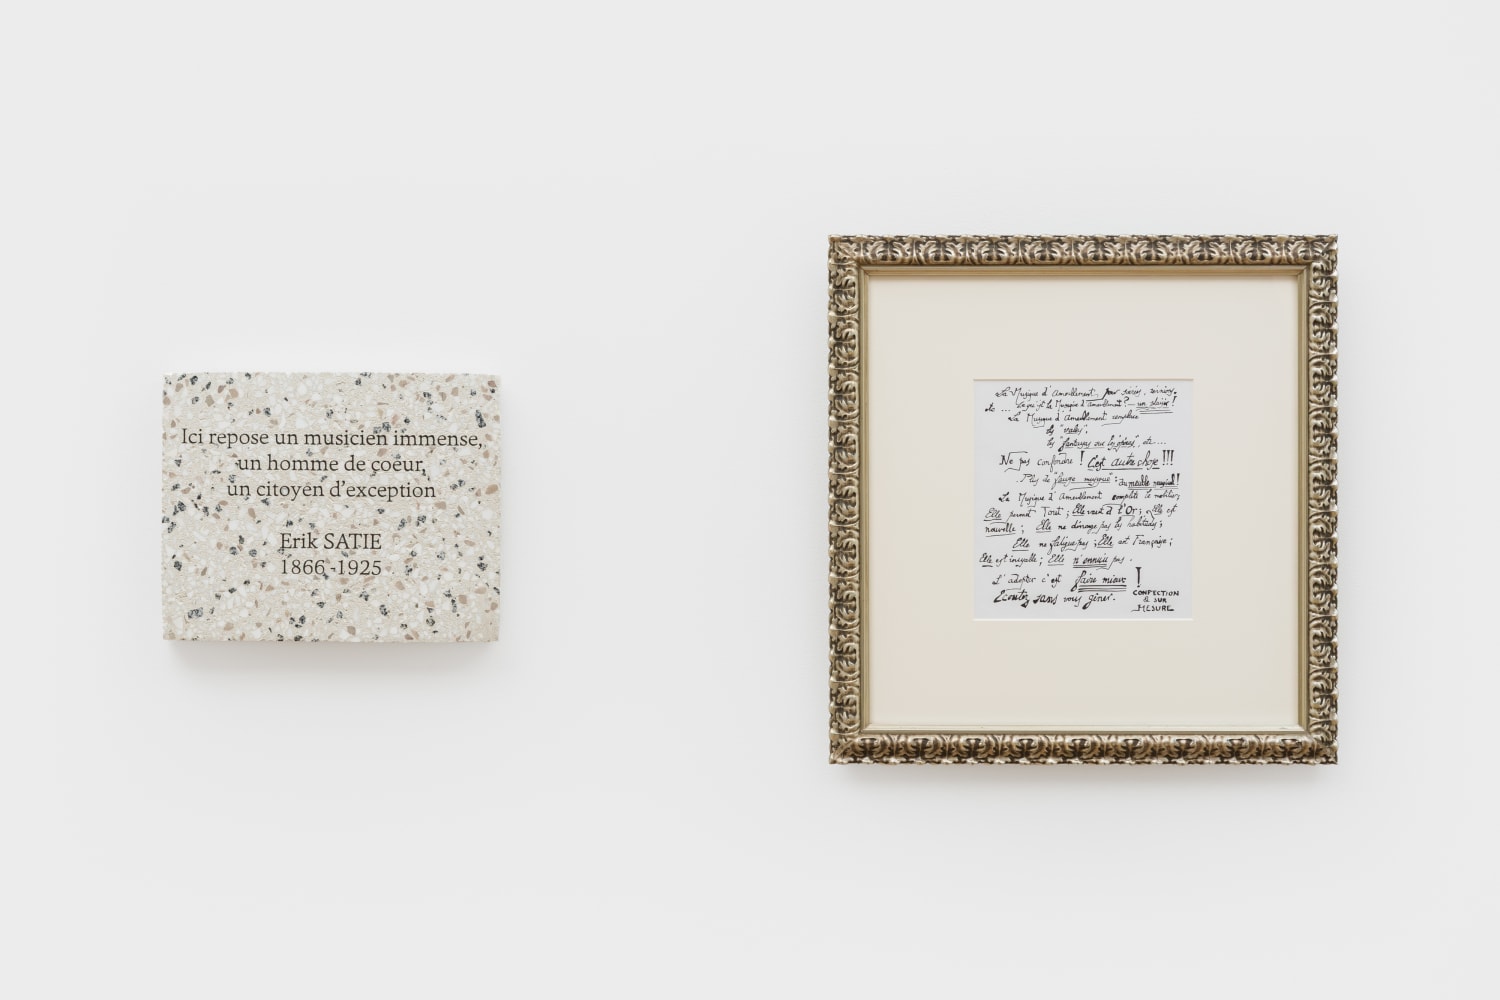 Ici repose un musicien immense,
un homme de coeur,
un citoyen d'exception
Erik SATIE
1866 -1925
La Musique d'Ameublement pour soirées, réunions,
etc ... Ce qu'est la Musique d'Ameublement? — un plaisir!
La Musique d'Ameublement remplace
les "valses",
les "fantaisies sur les opéras", etc...
Ne pas confondre! C'est autre chose!!!
Plus de "fausse musique": du meuble musical!
La Musique d'Ameublement complète le mobilier;
Elle permet Tout; Elle vaut de l'Or; Elle est
nouvelle; Elle ne dérange pas les habitudes;
Elle ne fatigue pas; Elle est Française;
Elle est inusable; Elle n'ennuie pas.
L'adopter c'est faire mieux!
Ecoutez sans vous gêner.
CONFECTION
& SUR
MESURE